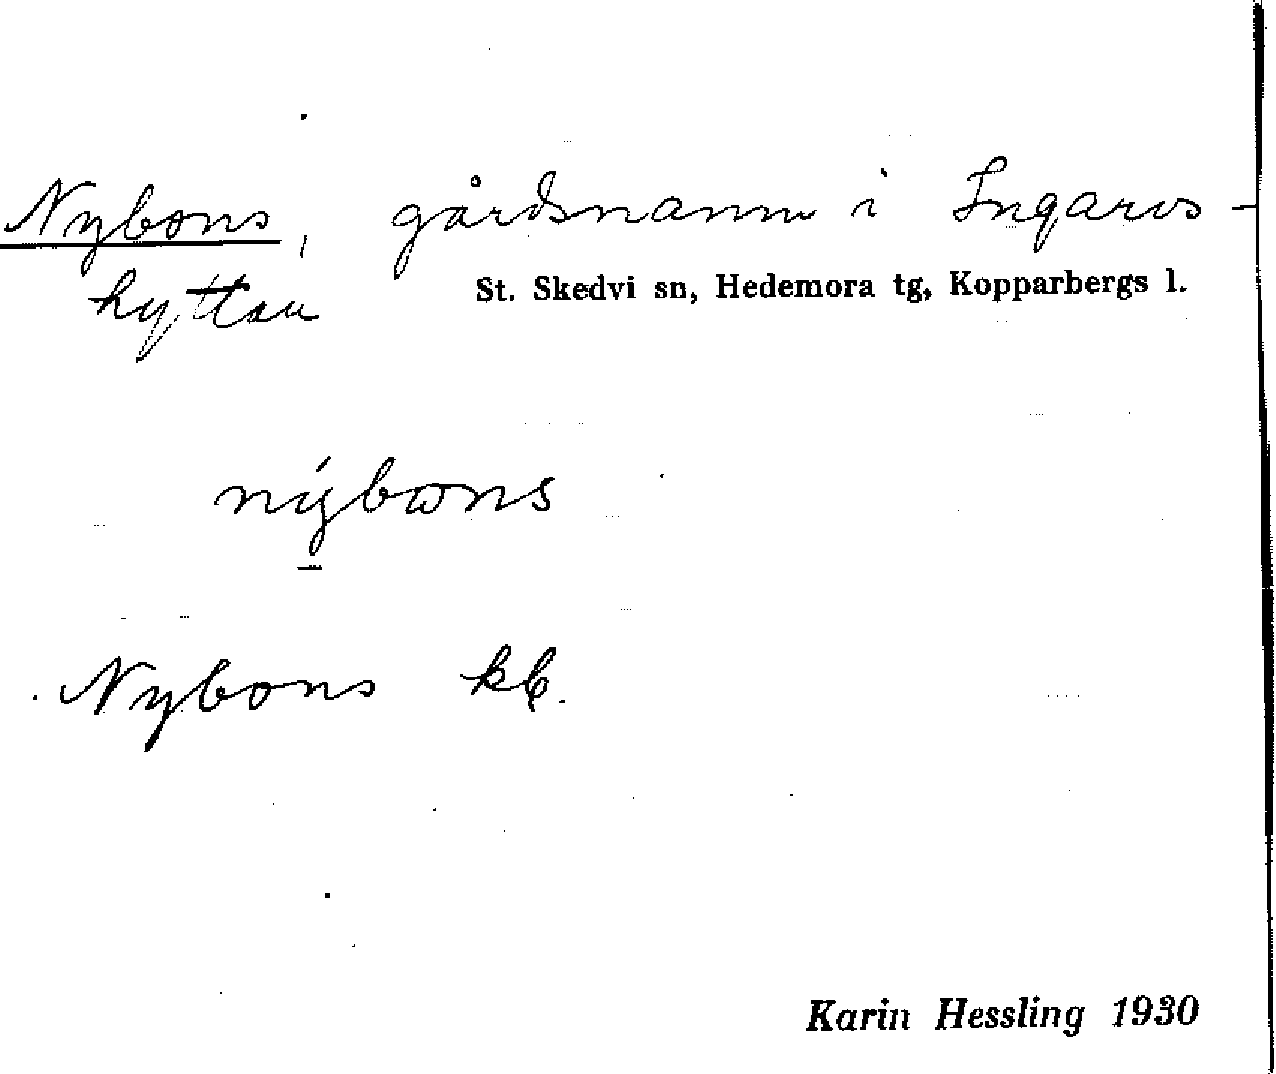 Nybons, gårdsnamn i Ingarvs-
hyttan
St. Skedvi sn, Hedemora tg, Kopparbergs l.
nýbons
Nybons kb.
Karin Hessling 1930